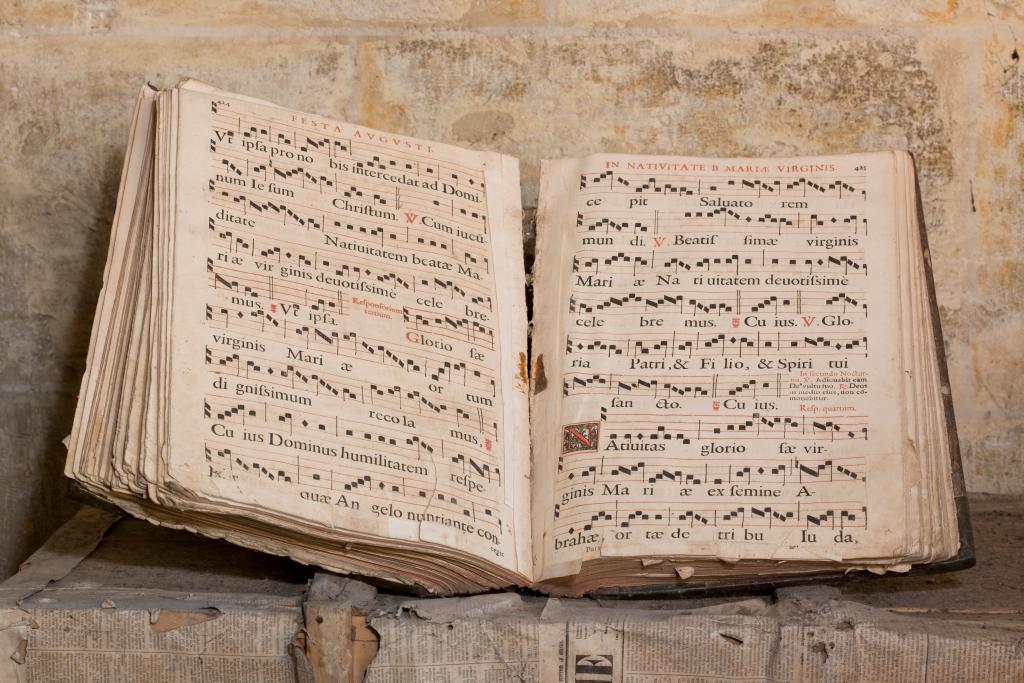 424
FESTA AVGVSTI.
Vt ipsa pro no bis intercedat ad Domi-
num Ie sum Christum. ℣ Cum iucū
ditate Natiuitatem beatæ Ma-
riæ vir ginis deuotissimè cele bre-
mus. Vt ipsa. Responsorium
tertium. Glorio sæ
virginis Mari æ or tum
di gnissimum reco la mus,
Cu ius Dominus humilitatem respe-
quæ An gelo nuntiante con-
IN NATIVITATE B MARIÆ VIRGINIS. 425
ce pit Saluato rem
mun di. ℣. Beatis simæ virginis
Mari æ Na ti uitatem deuotissimè
cele bre mus. Cu ius. ℣. Glo-
ria Patri, & Fi lio, & Spiri tui
In secundo Noctur-
no, ℣. Adiuuabit eam
Deº vultu suo, ℟. Deus
in medio eius, non cō-
mouebitur.
san cto. Cu ius. Resp. quartum.
NAtiuitas glorio sæ vir-
ginis Ma ri æ ex semine A-
brahæ, or tæ de tri bu Iu da,